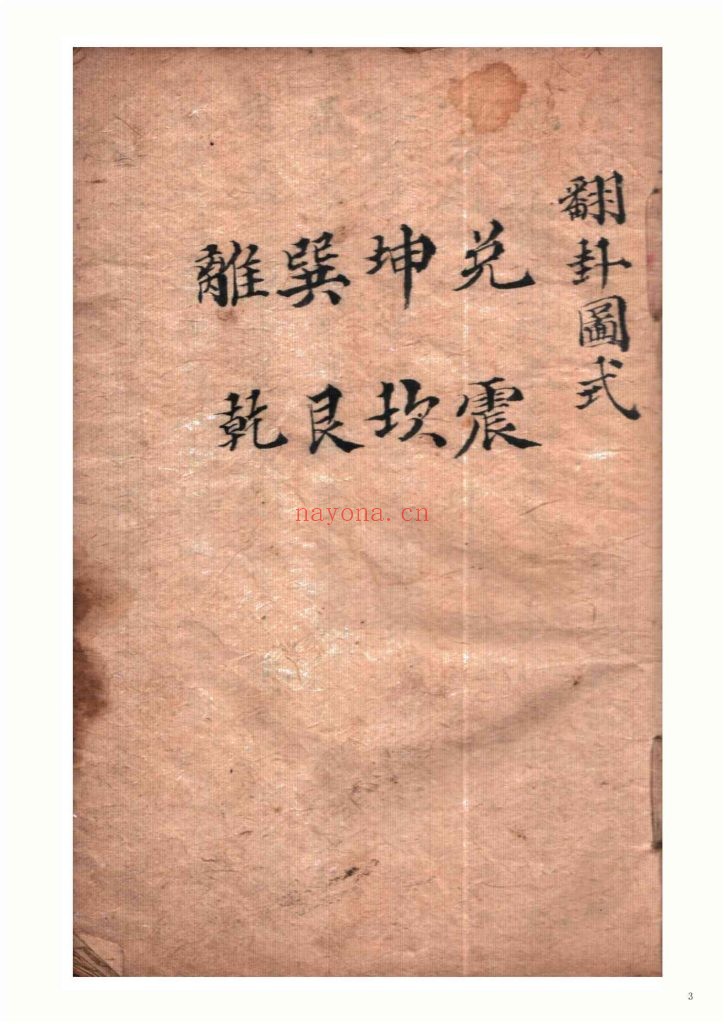 翻卦圖式
兑震
坤坎
巽艮
離乾
nayona.cn
3